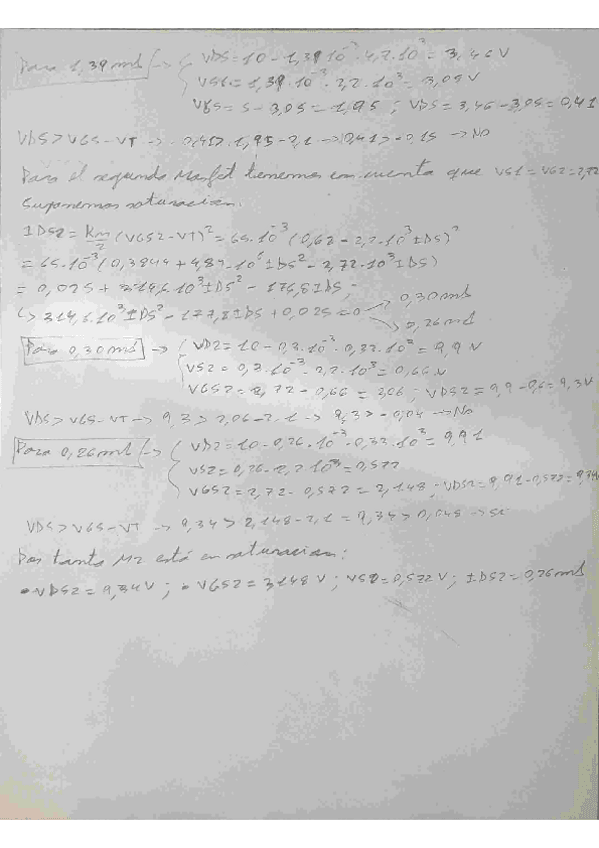 Para 1,39 mA -> { VDS = 10 - 1,39·10^-3 · 4,7·10^3 = 3,46 V
VS1 = 1,39·10^-3 · 2,2·10^3 = 3,05 V
VGS = 5 - 3,05 = 1,95 ; VDS = 3,46 - 3,05 = 0,41
VDS > VGS - VT -> 0,41 > 1,95 - 2,1 -> 0,41 > -0,15 -> No
Para el segundo Mosfet tenemos en cuenta que VS1 = VG2 = 2,72
Suponemos saturación.
IDS2 = Kn/2 (VGS2 - VT)^2 = 65·10^-3 (0,62 - 2,2·10^3 IDS)^2
= 65·10^-3 (0,3844 + 4,84·10^6 IDS^2 - 2,72·10^3 IDS)
= 0,025 + 314,6·10^3 IDS^2 - 176,8 IDS ;
↳ 314,6·10^3 IDS^2 - 177,8 IDS + 0,025 = 0 -> 0,30 mA
-> 0,26 mA
Para 0,30 mA -> { VD2 = 10 - 0,3·10^-3 · 0,33·10^3 = 9,9 V
VS2 = 0,3·10^-3 · 2,2·10^3 = 0,66 V
VGS2 = 2,72 - 0,66 = 2,06 ; VDS2 = 9,9 - 0,6 = 9,3 V
VDS > VGS - VT -> 9,3 > 2,06 - 2,1 -> 9,3 > -0,04 -> No
Para 0,26 mA -> { VD2 = 10 - 0,26·10^-3 · 0,33·10^3 = 9,91
VS2 = 0,26 · 2,2 10^3 = 0,572
VGS2 = 2,72 - 0,572 = 2,148 ; VDS2 = 9,91 - 0,572 =
VDS > VGS - VT -> 9,34 > 2,148 - 2,1 = 9,34 > 0,048 -> Si
Por tanto M2 está en saturación:
• VDS2 = 9,34 V ; • VGS2 = 3,148 V ; VS2 = 0,522 V ; IDS2 = 0,26 mA